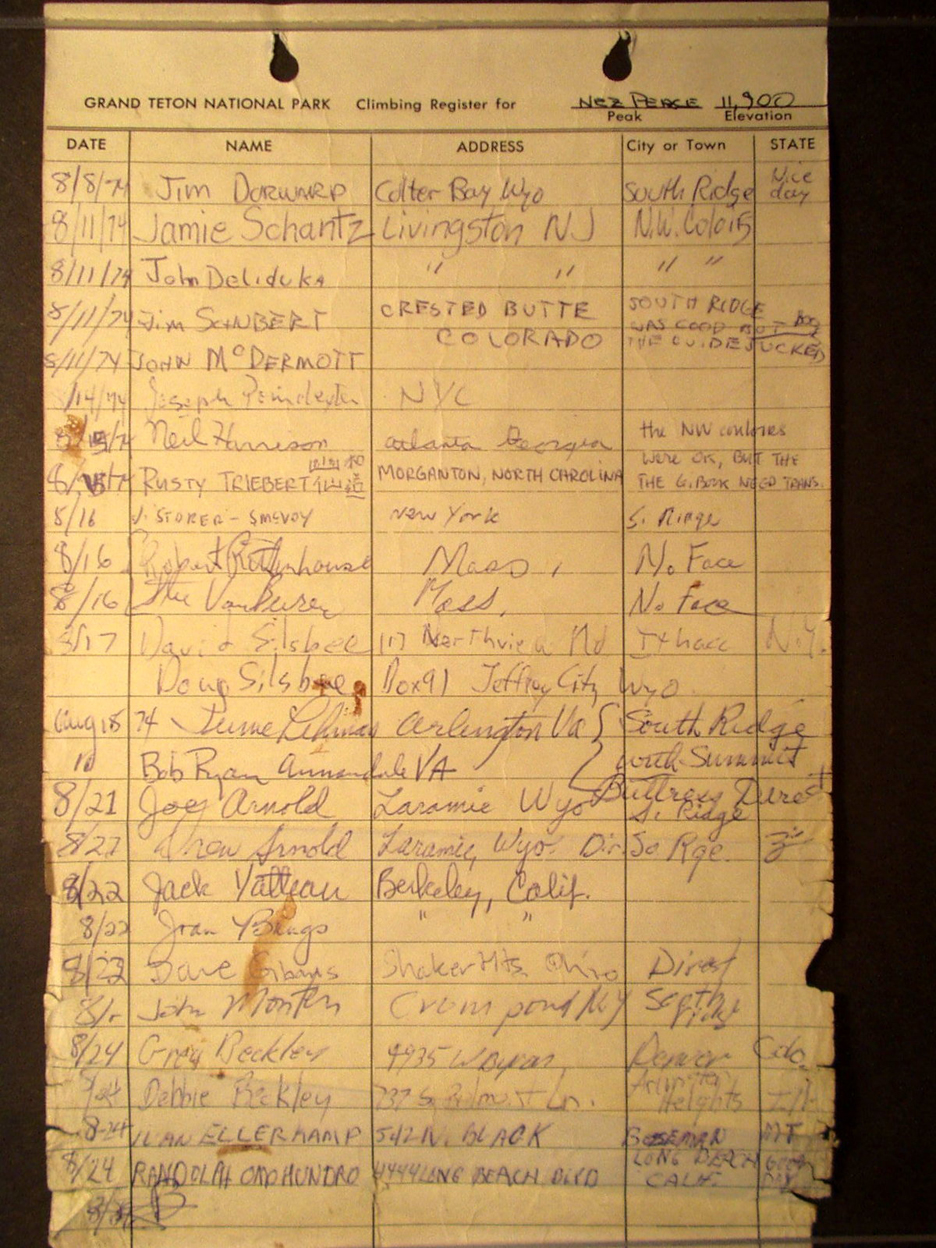 GRAND TETON NATIONAL PARK Climbing Register for NEZ PERCE 11,900
Peak Elevation
DATE NAME ADDRESS City or Town STATE
8/8/74 Jim DORWARD Colter Bay Wyo South Ridge Nice day
8/11/74 Jamie Schantz Livingston NJ N.W. Coloirs
8/11/74 John Deliduka " " " "
8/11/74 Jim SCHUBERT CRESTED BUTTE SOUTH RIDGE
COLORADO WAS GOOD BUT
8/11/74 JOHN McDERMOTT THE GUIDE BOOK SUCKED
8/14/74 Joseph Poindexter NYC
Neil Harrison Atlanta Georgia the NW couloirs
were OK, BUT THE
RUSTY TRIEBERT MORGANTON, NORTH CAROLINA THE G. BOOK NEED TRANS.
8/16 J. STORER - SMCVOY New York S. Ridge
8/16 Robert Rottenhouse Mass. No Face
8/16 Van Buren Mass. No Face
8/17 David Silsbee 117 Northview Rd Ithaca N.Y.
Doug Silsbee Box 91 Jeffrey City Wyo
Aug 18 74 Lehman Arlington Va South Ridge
11 Bob Ryan Annandale VA South Summit
Buttress Direct
8/21 Joey Arnold Laramie Wyo S. Ridge
Drew Arnold Laramie, Wyo. Dir. So Rge.
8/22 Jack Yatteau Berkeley, Calif.
8/22 Joan " "
8/23 Dave Gibans Shaker Hts. Ohio Direct
John Morton Crompond NY South Ridge
8/24 Greg Beckley 4935 W Denver Colo.
Debbie Beckley 737 S. Ln. Arlington Heights Ill.
8-24 IVAN ELLERKAMP 542 N. BLACK BOZEMAN MT
8/24 RANDOLPH OMOHUNDRO 4444 LONG BEACH BLVD LONG BEACH CALIF. GOOD DAY